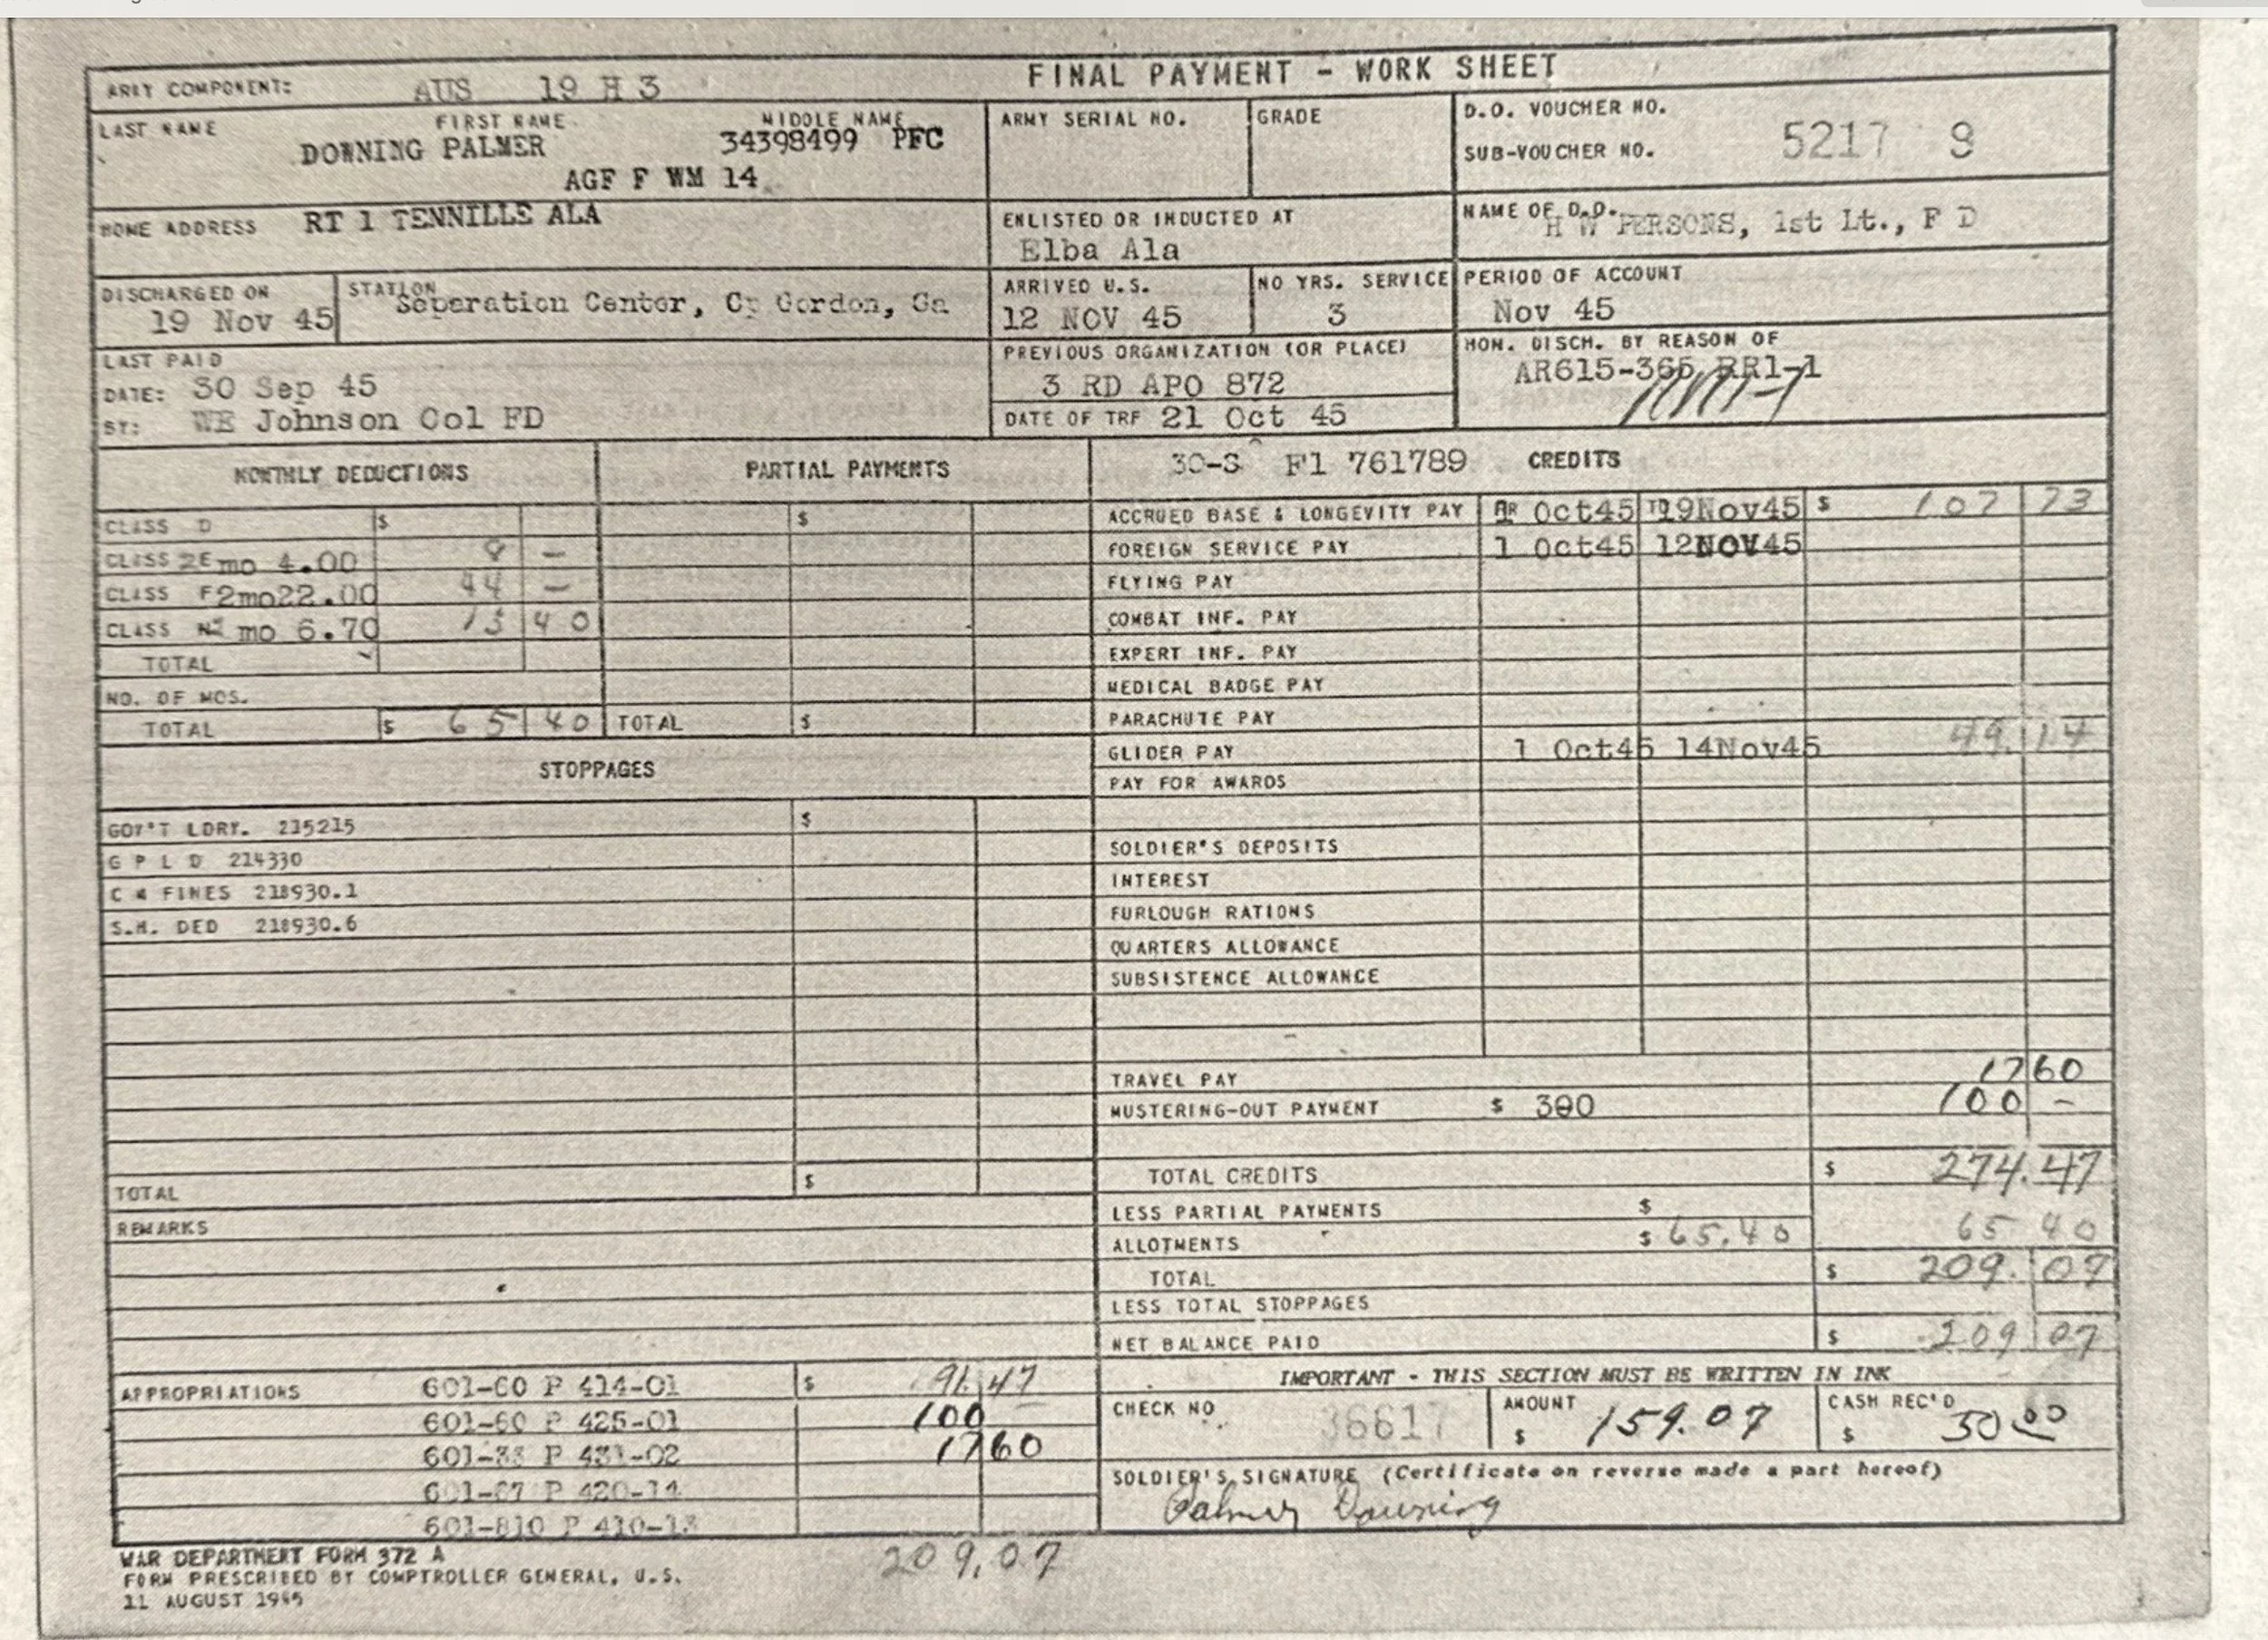 FINAL PAYMENT - WORK SHEET
ARMY COMPONENT: AUS 19 H 3
LAST NAME FIRST NAME MIDDLE NAME
DOWNING PALMER 34398499 PFC
AGF F WM 14
ARMY SERIAL NO. GRADE
D.O. VOUCHER NO.
SUB-VOUCHER NO. 5217 9
HOME ADDRESS RT 1 TENNILLE ALA
ENLISTED OR INDUCTED AT
Elba Ala
NAME OF D.O.
H W PERSONS, 1st Lt., F D
DISCHARGED ON
19 Nov 45
STATION
Seperation Center, Cp Gordon, Ga
ARRIVED U.S.
12 NOV 45
NO YRS. SERVICE
3
PERIOD OF ACCOUNT
Nov 45
LAST PAID
DATE: 30 Sep 45
BY: WE Johnson Col FD
PREVIOUS ORGANIZATION (OR PLACE)
3 RD APO 872
DATE OF TRF 21 Oct 45
HON. DISCH. BY REASON OF
AR615-365 RR1-1
MONTHLY DEDUCTIONS
PARTIAL PAYMENTS
30-S F1 761789 CREDITS
CLASS D $
CLASS 2E mo 4.00 8 -
CLASS F2mo22.00 44 -
CLASS N mo 6.70 13 40
TOTAL
NO. OF MOS.
TOTAL $ 65 40 TOTAL $
$
ACCRUED BASE & LONGEVITY PAY Oct45 19Nov45 $ 107 73
FOREIGN SERVICE PAY 1 Oct45 12NOV45
FLYING PAY
COMBAT INF. PAY
EXPERT INF. PAY
MEDICAL BADGE PAY
PARACHUTE PAY
GLIDER PAY 1 Oct45 14Nov45 49.14
PAY FOR AWARDS
STOPPAGES
GOV'T LDRY. 215215 $
G P L D 214330
C M FINES 218930.1
S.H. DED 218930.6
SOLDIER'S DEPOSITS
INTEREST
FURLOUGH RATIONS
QUARTERS ALLOWANCE
SUBSISTENCE ALLOWANCE
TRAVEL PAY 17 60
MUSTERING-OUT PAYMENT $ 300 100 -
TOTAL $
REMARKS
TOTAL CREDITS $ 274.47
LESS PARTIAL PAYMENTS $
ALLOTMENTS $ 65.40 65 40
TOTAL $ 209.07
LESS TOTAL STOPPAGES
NET BALANCE PAID $ 209 07
APPROPRIATIONS 601-60 P 414-01 $ 91.47
601-60 P 425-01 100
601-33 P 431-02 17 60
601-67 P 420-14
601-810 P 410-13
209.07
IMPORTANT - THIS SECTION MUST BE WRITTEN IN INK
CHECK NO 36617
AMOUNT
$ 159.07
CASH REC'D
$ 50 00
SOLDIER'S SIGNATURE (Certificate on reverse made a part hereof)
Palmer Downing
WAR DEPARTMENT FORM 372 A
FORM PRESCRIBED BY COMPTROLLER GENERAL, U.S.
11 AUGUST 1945